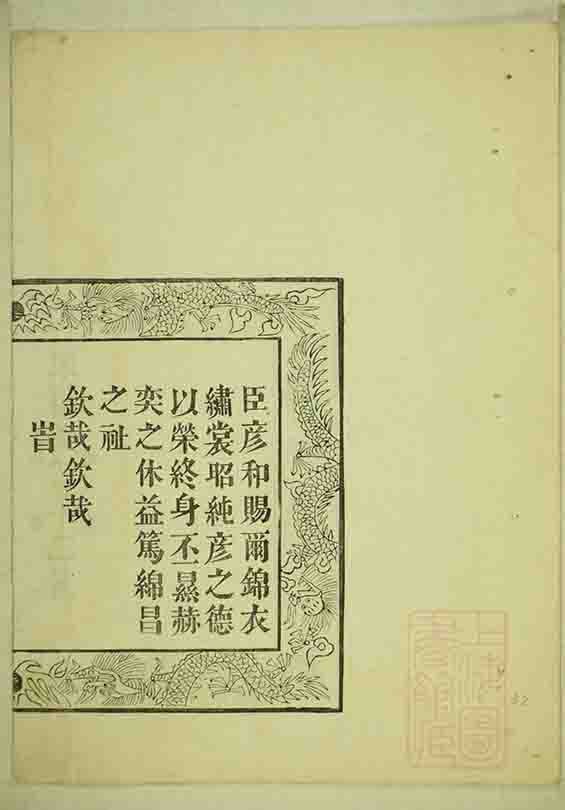 臣彦和賜爾錦衣
繡裳昭純彦之德
以榮終身丕㬎赫
奕之休益篤綿昌
之祉
欽哉欽哉
旹
上海圖書館藏
32